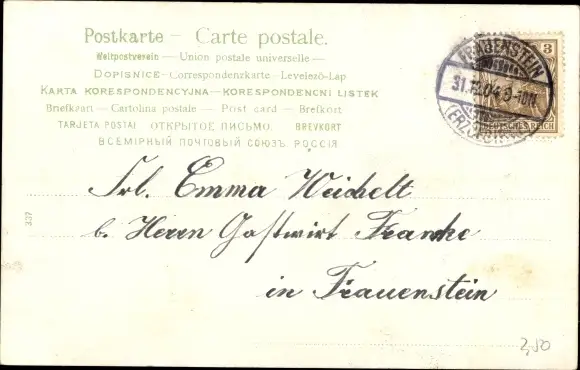 Postkarte — Carte postale.
Weltpostverein — Union postale universelle —
DOPISNICE — Correspondenzkarte — Levelező-Lap
KARTA KORESPONDENCYJNA — KORESPONDENCNI LISTEK
Briefkaart — Cartolina postale — Post card — Brefkort
TARJETA POSTAL ОТКРЫТОЕ ПИСЬМО BREVKORT
ВСЕМІРНЫЙ ПОЧТОВЫЙ СОЮЗЪ РОССІЯ
3
FRAUENSTEIN
31.12.04. 9-10N.
(ERZGEBIRGE)
DEUTSCHES REICH
Frl. Emma Weichelt
b. Herrn Gastwirt Francke
in Frauenstein
337
2,50